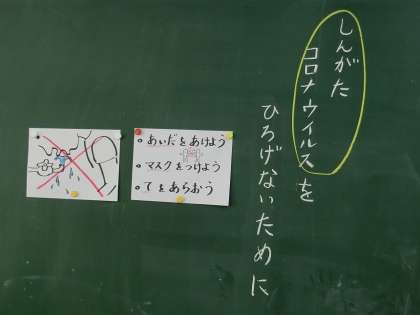 しんがた
コロナウイルスを
ひろげないために
・あいだをあけよう
・マスクをつけよう
・てをあらおう